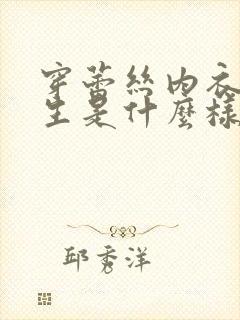 穿蕾丝内衣
生是什麼樣
邱秀洋